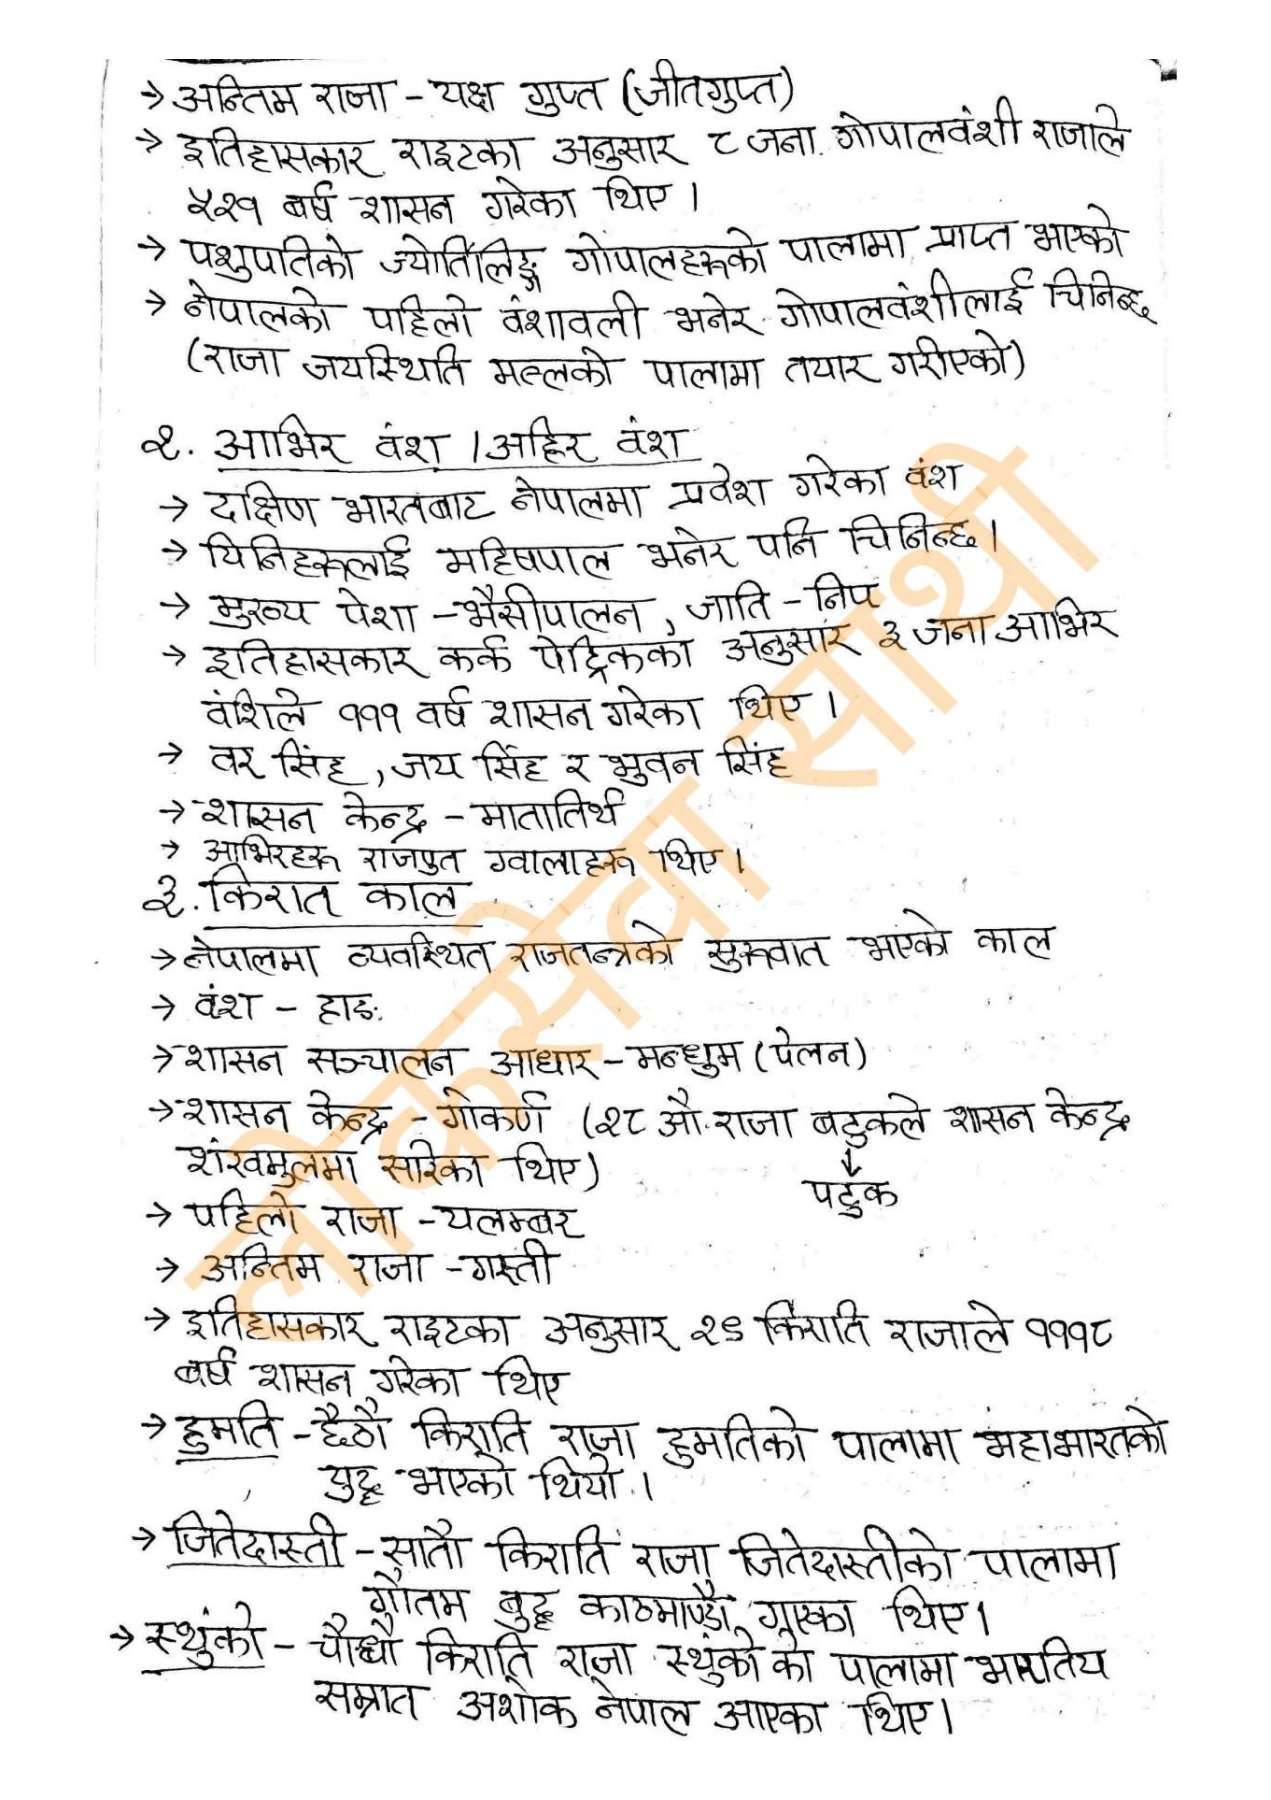 → अन्तिम राजा - यक्ष गुप्त (जीतगुप्त)
→ इतिहासकार राइटका अनुसार ८ जना गोपालवंशी राजाले
५२१ बर्ष शासन गरेका थिए ।
→ पशुपतिको ज्योर्तिलिङ्ग गोपालहरूको पालामा प्राप्त भएको
→ नेपालको पहिलो वंशावली भनेर गोपालवंशीलाई चिनिन्छ
(राजा जयस्थिति मल्लको पालामा तयार गरीएको)
२. आभिर वंश / अहिर वंश
→ दक्षिण भारतबाट नेपालमा प्रवेश गरेका वंश
→ यिनिहरूलाई महिषपाल भनेर पनि चिनिन्छ ।
→ मुख्य पेशा - भैसीपालन, जाति - निप
→ इतिहासकार कर्क पेट्रिकका अनुसार ३ जना आभिर
वंशिले १११ वर्ष शासन गरेका थिए ।
→ वर सिंह, जय सिंह र भुवन सिंह
→ शासन केन्द्र - मातातिर्थ
→ आभिरहरू राजपुत ग्वालाहरू थिए ।
३. किरात काल
→ नेपालमा व्यवस्थित राजतन्त्रको सुरूवात भएको काल
→ वंश - हाङ
→ शासन सञ्चालन आधार - मन्धुम (पेलन)
→ शासन केन्द्र - गोकर्ण (२८ औ राजा बटुकले शासन केन्द्र
↓
शंखमुलमा सरिका थिए)
पटुक
→ पहिलो राजा - यलम्बर
→ अन्तिम राजा - गस्ती
→ इतिहासकार राइटका अनुसार २९ किराति राजाले १११८
बर्ष शासन गरेका थिए
→ हुमति - छैठौ किराति राजा हुमतिको पालामा महाभारतको
युद्ध भएको थियो ।
→ जितेदास्ती - सातौ किराति राजा जितेदास्तीको पालामा
गौतम बुद्ध काठमाण्डौ गएका थिए ।
→ स्थुंको - चौधौ किराति राजा स्थुंको को पालामा भारतिय
सम्रात अशोक नेपाल आएका थिए ।
लोकसेवा साथी